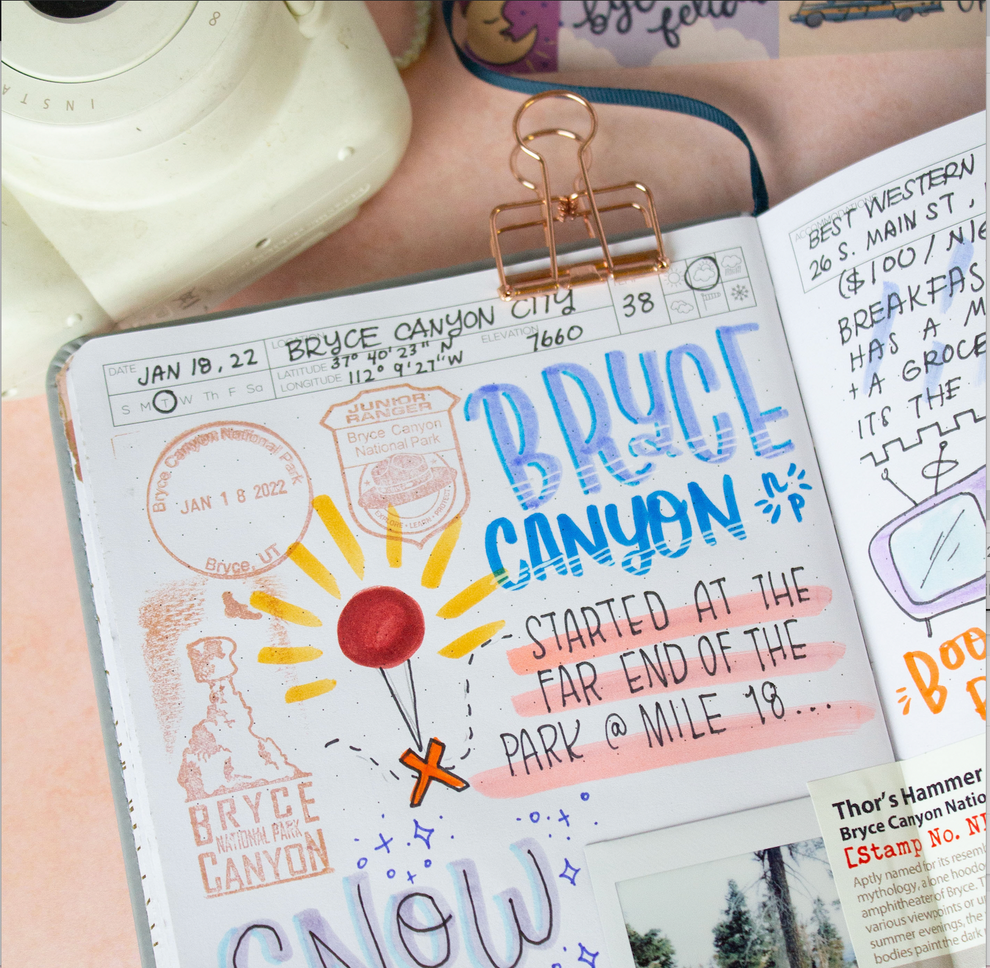 INSTA
8
bye felicia
DATE JAN 18, 22
LOCATION BRYCE CANYON CITY
LATITUDE 37° 40' 23" N
LONGITUDE 112° 9' 27" W
ELEVATION 7660
38
S M T W Th F Sa
Bryce Canyon National Park
JAN 18 2022
Bryce, UT
JUNIOR RANGER
Bryce Canyon
National Park
EXPLORE • LEARN • PROTECT
BRYCE
CANYON
NP
STARTED AT THE
FAR END OF THE
PARK @ MILE 18...
X
BRYCE
NATIONAL PARK
CANYON
SNOW
BEST WESTERN
26 S. MAIN ST,
($100/NIG
BREAKFAS
HAS A M
+ A GROCE
ITS THE
BOO
Thor's Hammer
Bryce Canyon Natio
[Stamp No. N
Aptly named for its resembl
mythology, a lone hoodoo
amphitheater of Bryce. T
various viewpoints or u
summer evenings, the
bodies paint the dark